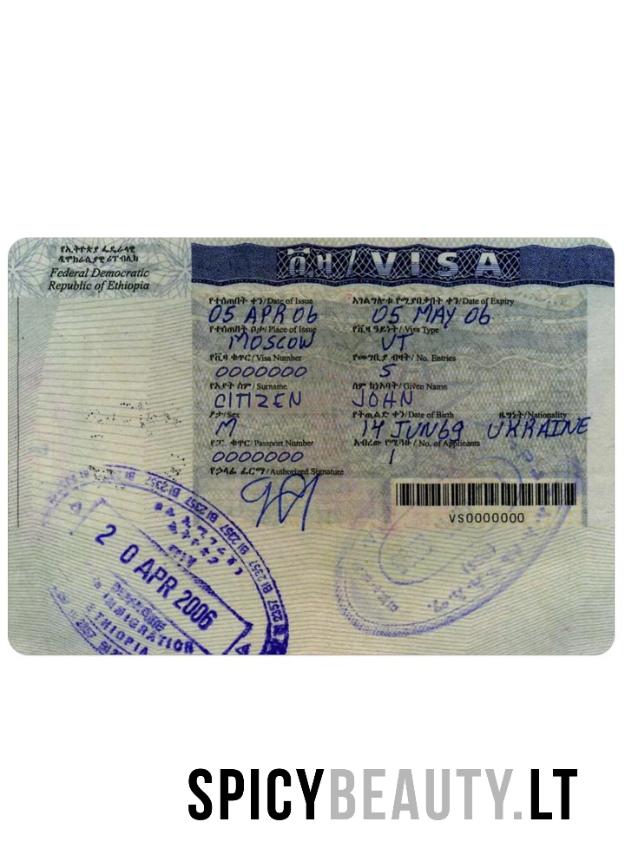 የኢትዮጵያ ፌዴራላዊ
ዲሞክራሲያዊ ሪፐብሊክ
Federal Democratic
Republic of Ethiopia
ቪዛ / VISA
የተሰጠበት ቀን/Date of Issue
05 APR 06
አገልግሎቱ የሚያበቃበት ቀን/Date of Expiry
05 MAY 06
የተሰጠበት ቦታ/Place of Issue
MOSCOW
የቪዛ ዓይነት/Visa Type
VT
የቪዛ ቁጥር/Visa Number
0000000
የመግቢያ ብዛት/No. Entries
S
የአያት ስም/Surname
CITIZEN
ስም ከነአባት/Given Name
JOHN
ፆታ/Sex
M
የትውልድ ቀን/Date of Birth
14 JUN 69
ዜግነት/Nationality
UKRAINE
የፓ. ቁጥር/Passport Number
0000000
አብረው የሚጓዙ/No. of Applicants
1
የኃላፊ ፊርማ/Authorized Signature
VS0000000
BI 2357 BI 2357 BI 2357
20 APR 2006
IMMIGRATION
ETHIOPIA
SPICYBEAUTY.LT